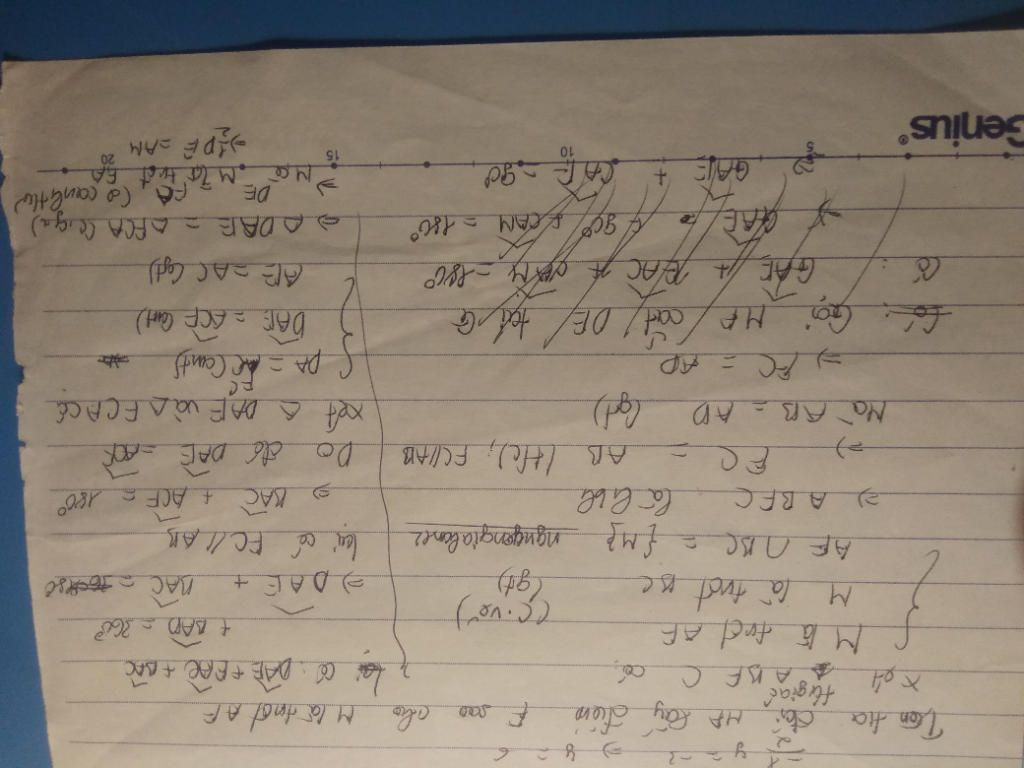 -1/2 y = -3 ⇒ y = 6
Trên tia đối MA lấy điểm F sao cho M là trđ AF
Xét tứ giác ABFC có:
M là trđ AF (c.vẽ)
M là trđ BC (gt)
AF ∩ BC = {M}
⇒ ABFC là hbh
⇒ FC = AB (t/c); FC//AB
Mà AB = AD (gt)
⇒ FC = AD
Có: Gọi MA cắt DE tại G
Có: GAE + EAC + CAM = 180°
GAE + 90° + CAM = 180°
⇒ GAE + CAE = 90°
Lại có: DAE + EAC + BAC
+ BAD = 360°
⇒ DAE + BAC = 180
Lại có FC // AB
⇒ BAC + ACF = 180°
Do đó DAE = ACF
Xét △ DAE và △ FCA có
DA = FC (cmt)
DAE = ACF (cmt)
AE = AC (gt)
⇒ △ DAE = △ FCA (c.g.c)
⇒ DE = FA (2 cạnh t/ư)
Mà M là trđ FA
⇒ 1/2 DE = AM
Genius
5 10 15 20